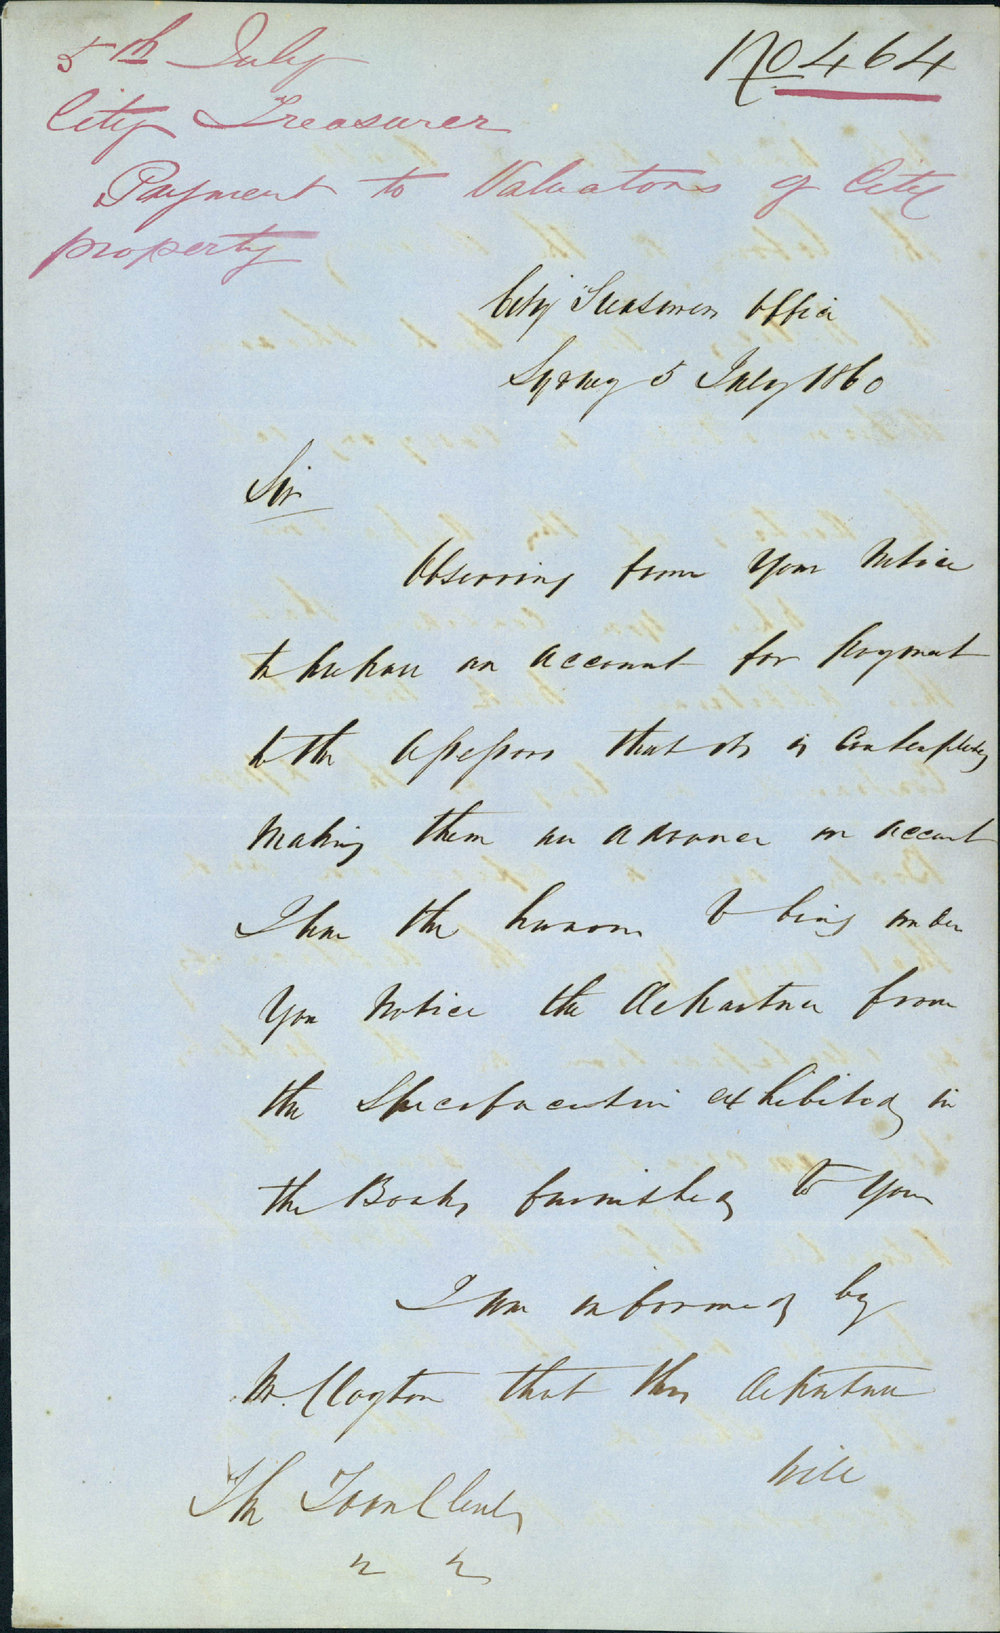 5th July
No 464
City Treasurer
Payment to Valuators of City
property
City Treasurers Office
Sydney 5 July 1860
Sir
Observing from your Notice
to prepare an account for payment
to the Assessors that it is contemplated
making them an advance on account
I have the honor to bring under
your notice the departure from
the Specification exhibited in
the Books furnished to you
I am informed by
Mr. Clayton that this departure
will
The Town Clerk
" "